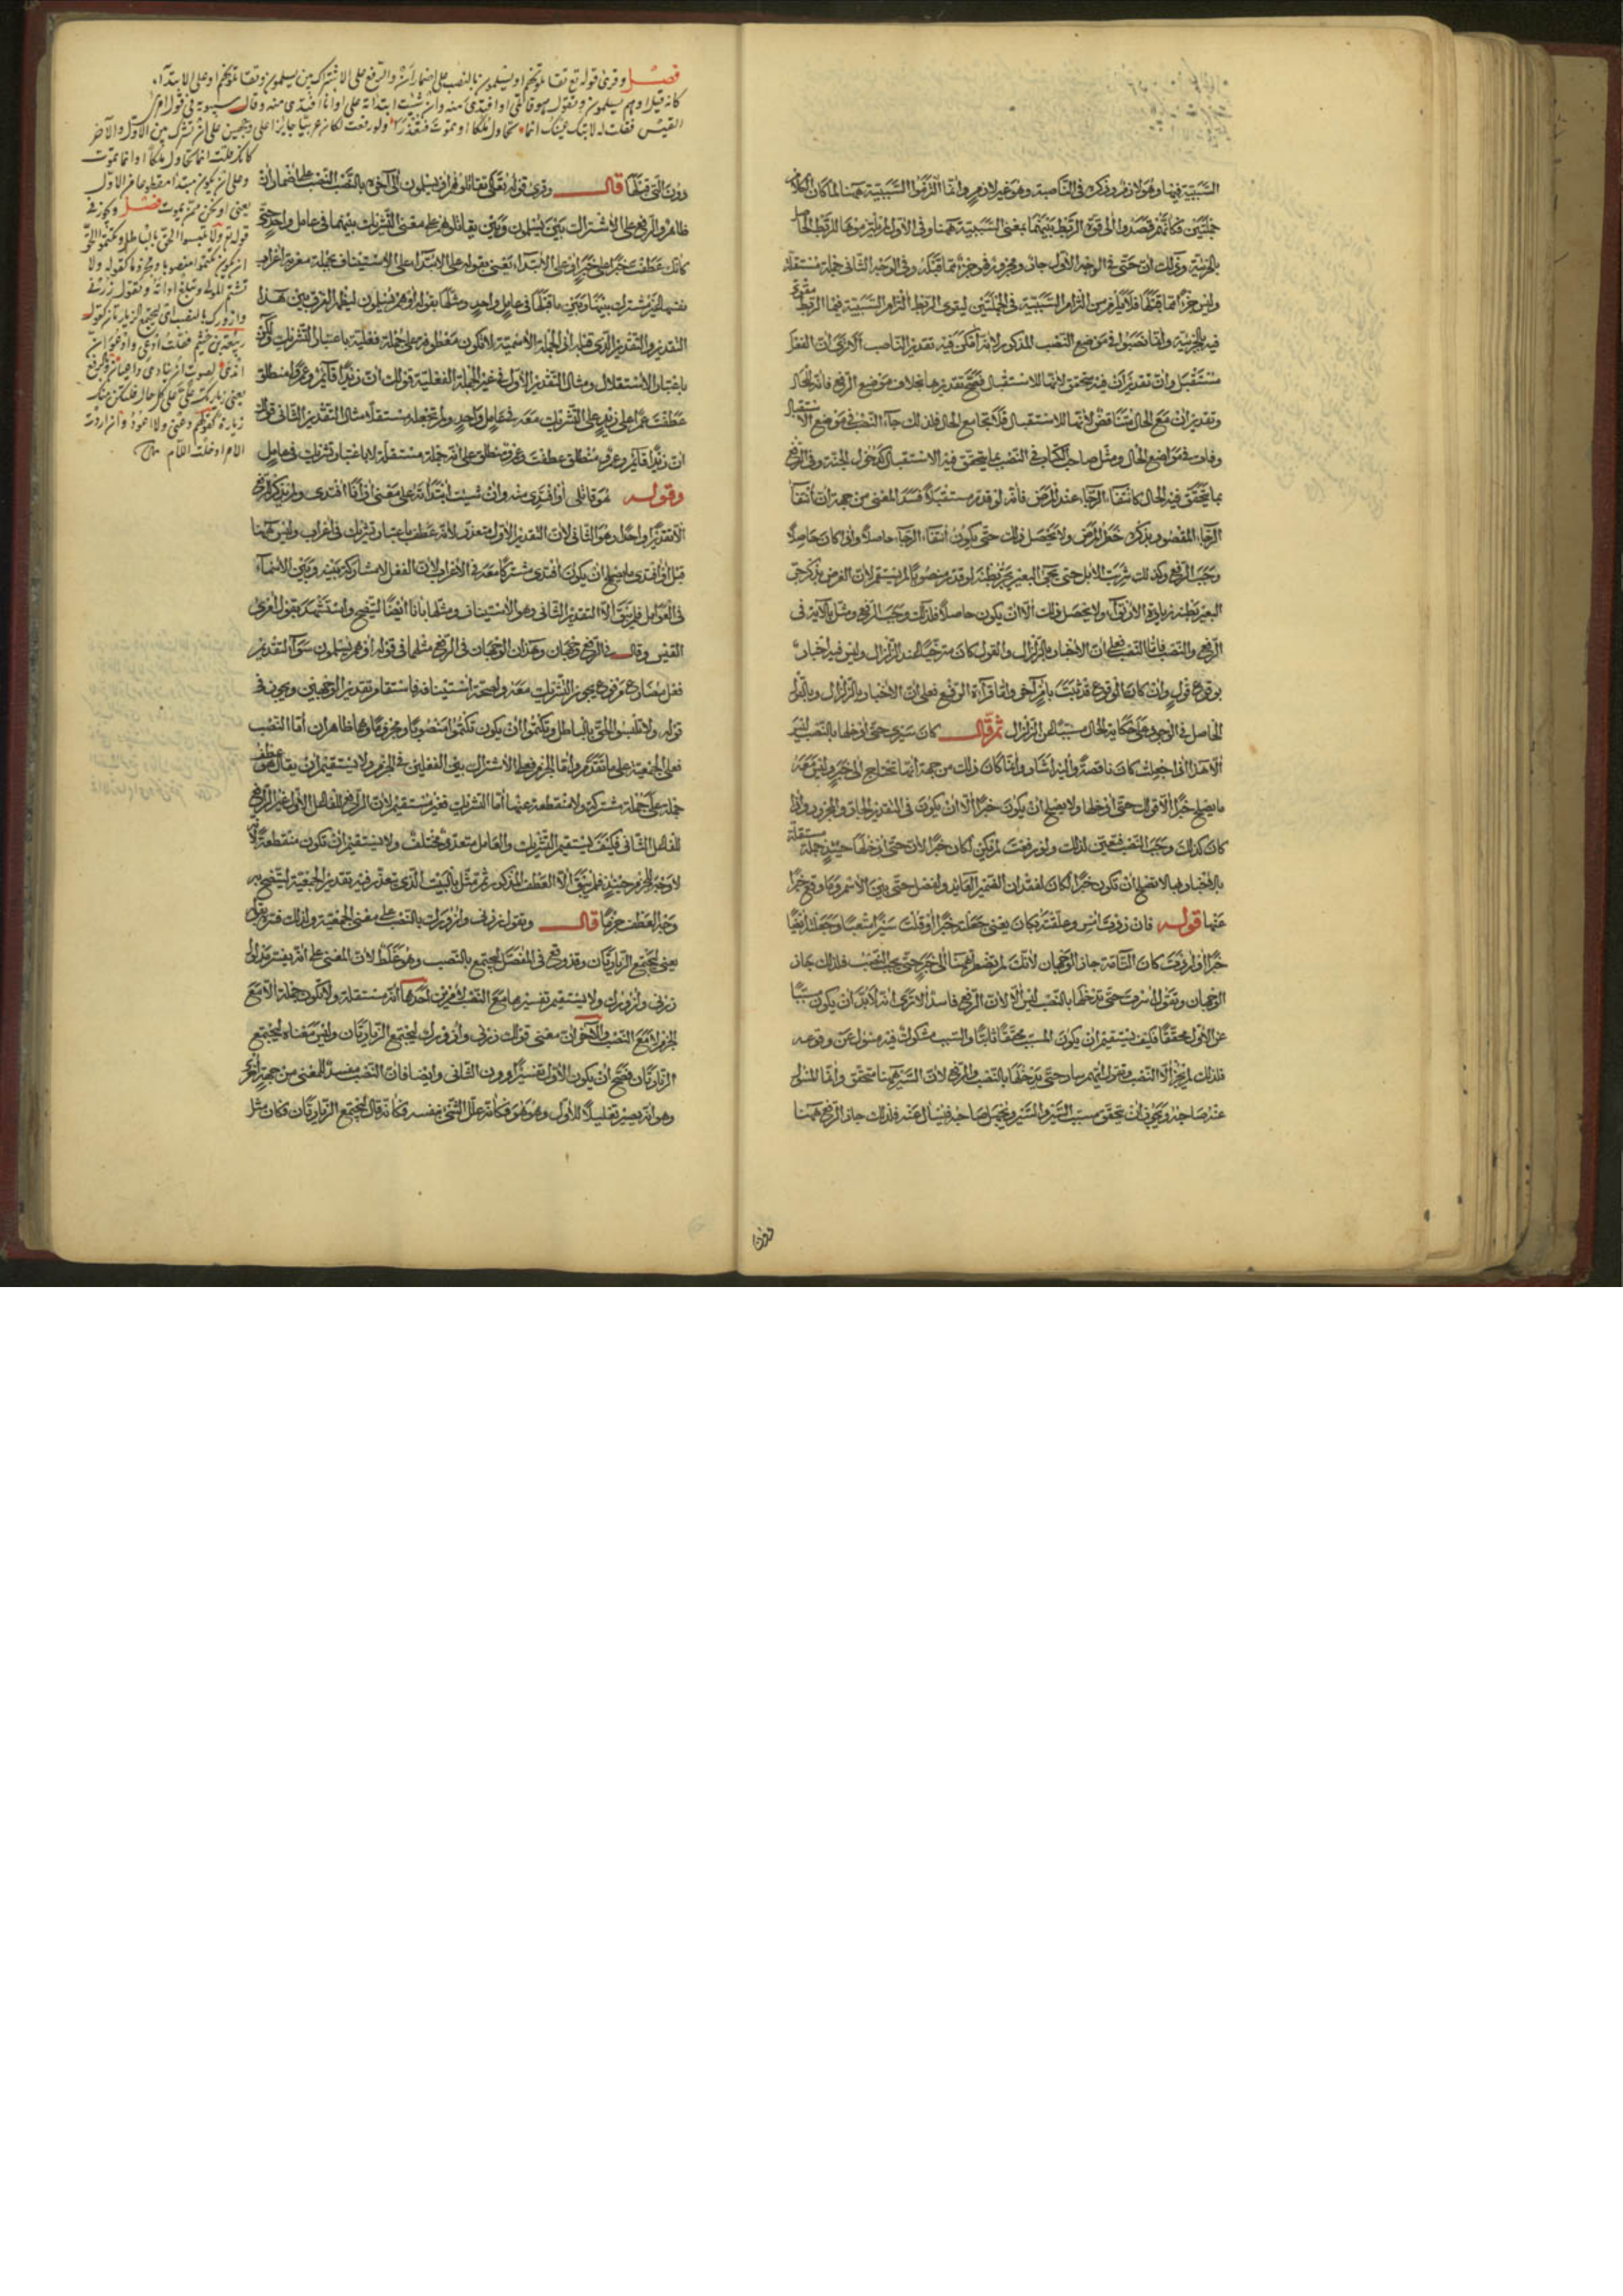 السببية فيها وهو لازم وذكره في الناصبة وهو غير لازم وإنما التزموا السببية ههنا لما كان الكلام
جملتين فكأنهم قصدوا إلى قوة الربط بينهما بمعنى السببية ههنا وفي الأول لم يلتزموها للربط الحاصل
بالجزئية وذلك أن حتى في الوجه الأول جار ومجرور فهو جزء مما قبله وفي الوجه الثاني جملة مستقلة
وليس جزءا مما قبلها فلا يلزم من التزام السببية في الجملتين ليقوى الربط التزام السببية فيما الربط مقوى
فيه بالجزئية وإنما نصبوا في موضع النصب المذكور لأنه أمكن فيه تقدير الناصب ألا ترى أن الفعل
مستقبل وأن تقدير أن فيه يتحقق لأنها للاستقبال فصح تقديرها بخلاف موضع الرفع فإنه للحال
وتقدير أن مع الحال متناقض لأنها للاستقبال فلا تجامع الحال فلذلك جاء النصب في موضع الاستقبال
وفات في مواضع الحال ومثل صاحب الكتاب في النصب بما يتحقق فيه الاستقبال كدخول الجنة وفي الرفع
بما يتحقق فيه الحال كانتفاء الرجاء عند المرض فإنه لو قدر مستقبلا فسد المعنى من جهة أن انتفاء
الرجاء المقصود بذكره خطر المرض ولا يحصل ذلك حتى يكون انتفاء الرجاء حاصلا وإن كان حاصلا
وجب الرفع وكذلك شربت الإبل حتى يجيء البعير يجر بطنه لو قدر منصوبا لم يستقم لأن الغرض بذكر جر
البعير بطنه زيادة الارتواء ولا يحصل ذلك إلا أن يكون حاصلا فلذلك وجب الرفع ومثل بالآية في
الرفع والنصب فأما النصب فعلى أن الإخبار بالزلزال والقول كان مترقبا عند الزلزال وليس فيه إخبار
بوقوع قول وإن كان الوقوع قد ثبت بأمر آخر وأما قراءة الرفع فعلى أن الإخبار بالزلزال وبالقول
الحاصل في الوجود على حكاية الحال مسببا عن الزلزال ثم قال كان سيري حتى أدخلها بالنصب ليس
إلا هذا إذا جعلت كان ناقصة وإليه أشار وإنما كان ذلك من جهة أنها تحتاج إلى خبر وليس معه
ما يصلح خبرا إلا قولك حتى أدخلها ولا يصلح أن يكون خبرا إلا أن يكون في التقدير الجار والمجرور وإذا
كان كذلك وجب النصب فتعين لذلك ولو رفعت لم يكن لكان خبر لأن حتى أدخلها حينئذ جملة مستقلة
عنها قوله فإن زدت أمس وعلقته بكان يعني جعلته خبرا أو قلت سيرا متعبا وجعلته أيضا
خبرا أو أردت كان التامة جاز الوجهان لأنك لم تضطر ههنا إلى خبر حتى يجب النصب فلذلك جاز
الوجهان وتقول أسرت حتى تدخلها بالنصب ليس إلا لأن الرفع فاسد ألا ترى أنه لا بد أن يكون مسببا
عن الأول محققا فكيف يستقيم أن يكون المسبب محققا ثابتا والسبب مشكوك فيه مسئول عن وقوعه
فلذلك لم يجز إلا النصب وتقول أيهم سار حتى يدخلها بالنصب والرفع لأن السير ههنا متحقق وإنما المسئول
عنه صاحبه ويجوز أن يتحقق مسبب السير والسير ويجهل صاحبه فيسأل عنه فلذلك جاز الرفع ههنا
دون
فصل وقرئ قوله تع تقاتلونهم أو يسلمون بالنصب على إضمار أن والرفع على الاشتراك بين يسلمون وتقاتلونهم أو على الابتداء
كأنه قيل أو هم يسلمون وتقول هو قاتلي أو أفتدي منه وإن شئت ابتدأته على أو أنا أفتدي منه وقال سيبويه في قول امرئ
القيس فقلت له لا تبك عينك إنما نحاول ملكا أو نموت فنعذرا ولو رفعت لكان عربيا جائزا على وجهين على أن تشرك بين الأول والآخر
كأنك قلت إنما نحاول ملكا أو إنما نموت
وعلى أن يكون مبتدأ مقطوعا من الأول
يعني أو نحن ممن يموت فصل ويجوز في
قوله تع ولا تلبسوا الحق بالباطل وتكتموا الحق
أن يكون تكتموا منصوبا ومجزوما كقوله ولا
تشتم المولى وتبلغ أذاته وتقول زرني
وأزورك بالنصب أي لتجتمع الزيارتان كقول
ربيعة بن جشم فقلت ادعي وأدعو إن
أندى لصوت أن ينادي داعيان وبالرفع
يعني زيارتك علي على كل حال فلتكن منك
زيارة كقولهم دعني ولا أعود وإن أردت
الأمر أدخلت اللام
دون التي قبلها قال وقرئ قوله تعالى تقاتلونهم أو يسلمون إلى آخره بالنصب النصب على إضمار أن
ظاهر والرفع على الاشتراك بين يسلمون وبين تقاتلونهم على معنى التشريك بينهما في عامل واحد حتى
كأنك عطفت خبرا على خبر أو على الابتداء يعني بقوله على الابتداء على الاستيناف بجملة معربة إعراب
نفسها غير مشترك بينها وبين ما قبلها في عامل واحد ومثلها بقوله أو هم يسلمون ليظهر الفرق بين هذا
التقدير والتقدير الذي قبله إذ الجملة الاسمية لا تكون معطوفة على جملة فعلية باعتبار التشريك لكن
باعتبار الاستقلال ومثال التقدير الأول في غير الجملة الفعلية قولك إن زيدا قائم وعمرا منطلق
عطفت عمرا على زيد على التشريك معه في عامل واحد ولم تجعله مستقلا ومثال التقدير الثاني قولك
إن زيدا قائم وعمرو منطلق عطفت عمرو منطلق على أنه جملة مستقلة لا باعتبار تشريك في عامل
وقوله هو قاتلي أو أفتدي منه وإن شئت ابتدأته على معنى أو أنا أفتدي ولم يذكر للرفع
إلا تقديرا واحدا وهو الثاني لأن التقدير الأول متعذر لأنه عطف باعتبار تشريك في إعراب وليس ههنا
قبل أو أفتدي ما يصلح أن يكون أفتدي مشتركا معه في الإعراب لأن الفعل لا مشاركة بينه وبين الأسماء
في العوامل فلم يبق إلا التقدير الثاني وهو الاستيناف ومثلها بأنا أيضا ليتضح واستشهد بقول امرئ
القيس وقال في الرفع وجهان وهذان الوجهان في الرفع مثلهما في قوله أو هم يسلمون سواء التقدير
فعل مضارع مرفوع يجوز التشريك معه واضحة استينافه فاستقام تقدير الوجهين ويجوز في
قوله ولا تلبسوا الحق بالباطل وتكتموا أن يكون تكتموا منصوبا ومجزوما وهما ظاهران أما النصب
فعلى الجمعية على ما تقدم وأما الجزم فعلى الاشتراك بين الفعلين في الجزم ولا يستقيم أن يقال هو عطف
جملة على جملة مشتركة ولا منقطعة عنها أما التشريك فغير مستقيم لأن الرافع للفاعل الأول غير الرافع
للفاعل الثاني فكيف يستقيم التشريك والعامل متعدد مختلف ولا يستقيم أن تكون منقطعة لأنه
لا وجه للجزم حينئذ فلم يبق إلا العطف المذكور ثم مثل بالبيت الذي يتعذر فيه تقدير الجمعية ليتضح به
وجه العطف جزما قال وتقول زرني وأزورك بالنصب على معنى الجمعية ولذلك فسره بقوله
يعني لتجتمع الزيارتان وقد وقع في المفصل لتجتمع بالنصب وهو غلط لأن المعنى على أنه يفسر مدلول
زرني وأزورك ولا يستقيم تفسيرها مع النصب لأمرين أحدهما أنه مستقلة ولا تكون جملة إلا مع
الجزم لا مع النصب والآخر أن معنى قولك زرني وأزورك لتجتمع الزيارتان وليس معناه لتجتمع
الزيارتان فصح أن يكون الأول تفسيرا دون الثاني وأيضا فإن النصب مفسد للمعنى من جهة أخرى
وهو أنه يصير تعليلا للأول وهو هو فكأنه علل الشيء بنفسه فكأنه قال لتجتمع الزيارتان فكان مثل